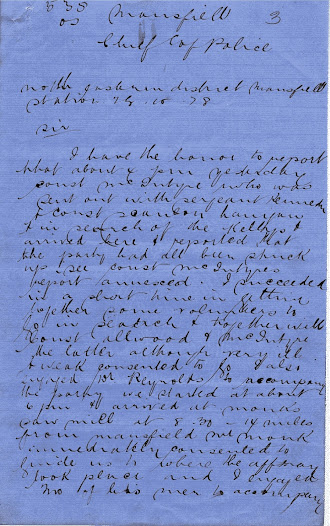 538 Mansfield 3
os
Chief of Police
North eastern district Mansfield
Station 28.10.78
Sir
I have the honor to report
that about 4 pm yesterday
const McIntyre who was
sent out with sergeant Kennedy
& const Scanlon Lonigan
& in search of the Kellys
arrived here & reported that
the party had all been struck
up see const McIntyres
report annexed. I succeeded
in a short time in getting
together some volunteers to
go in search & together with
const Allwood & McIntyre
the latter although very ill
& weak consented to go I also
engaged Dr Reynolds to accompany
the party we started at about
6 pm & arrived at monks
saw mill at 8.30 - 14 miles
from mansfield mr monk
immediately consented to
guide us to where the affray
took place and I engaged
two of his men to accompany